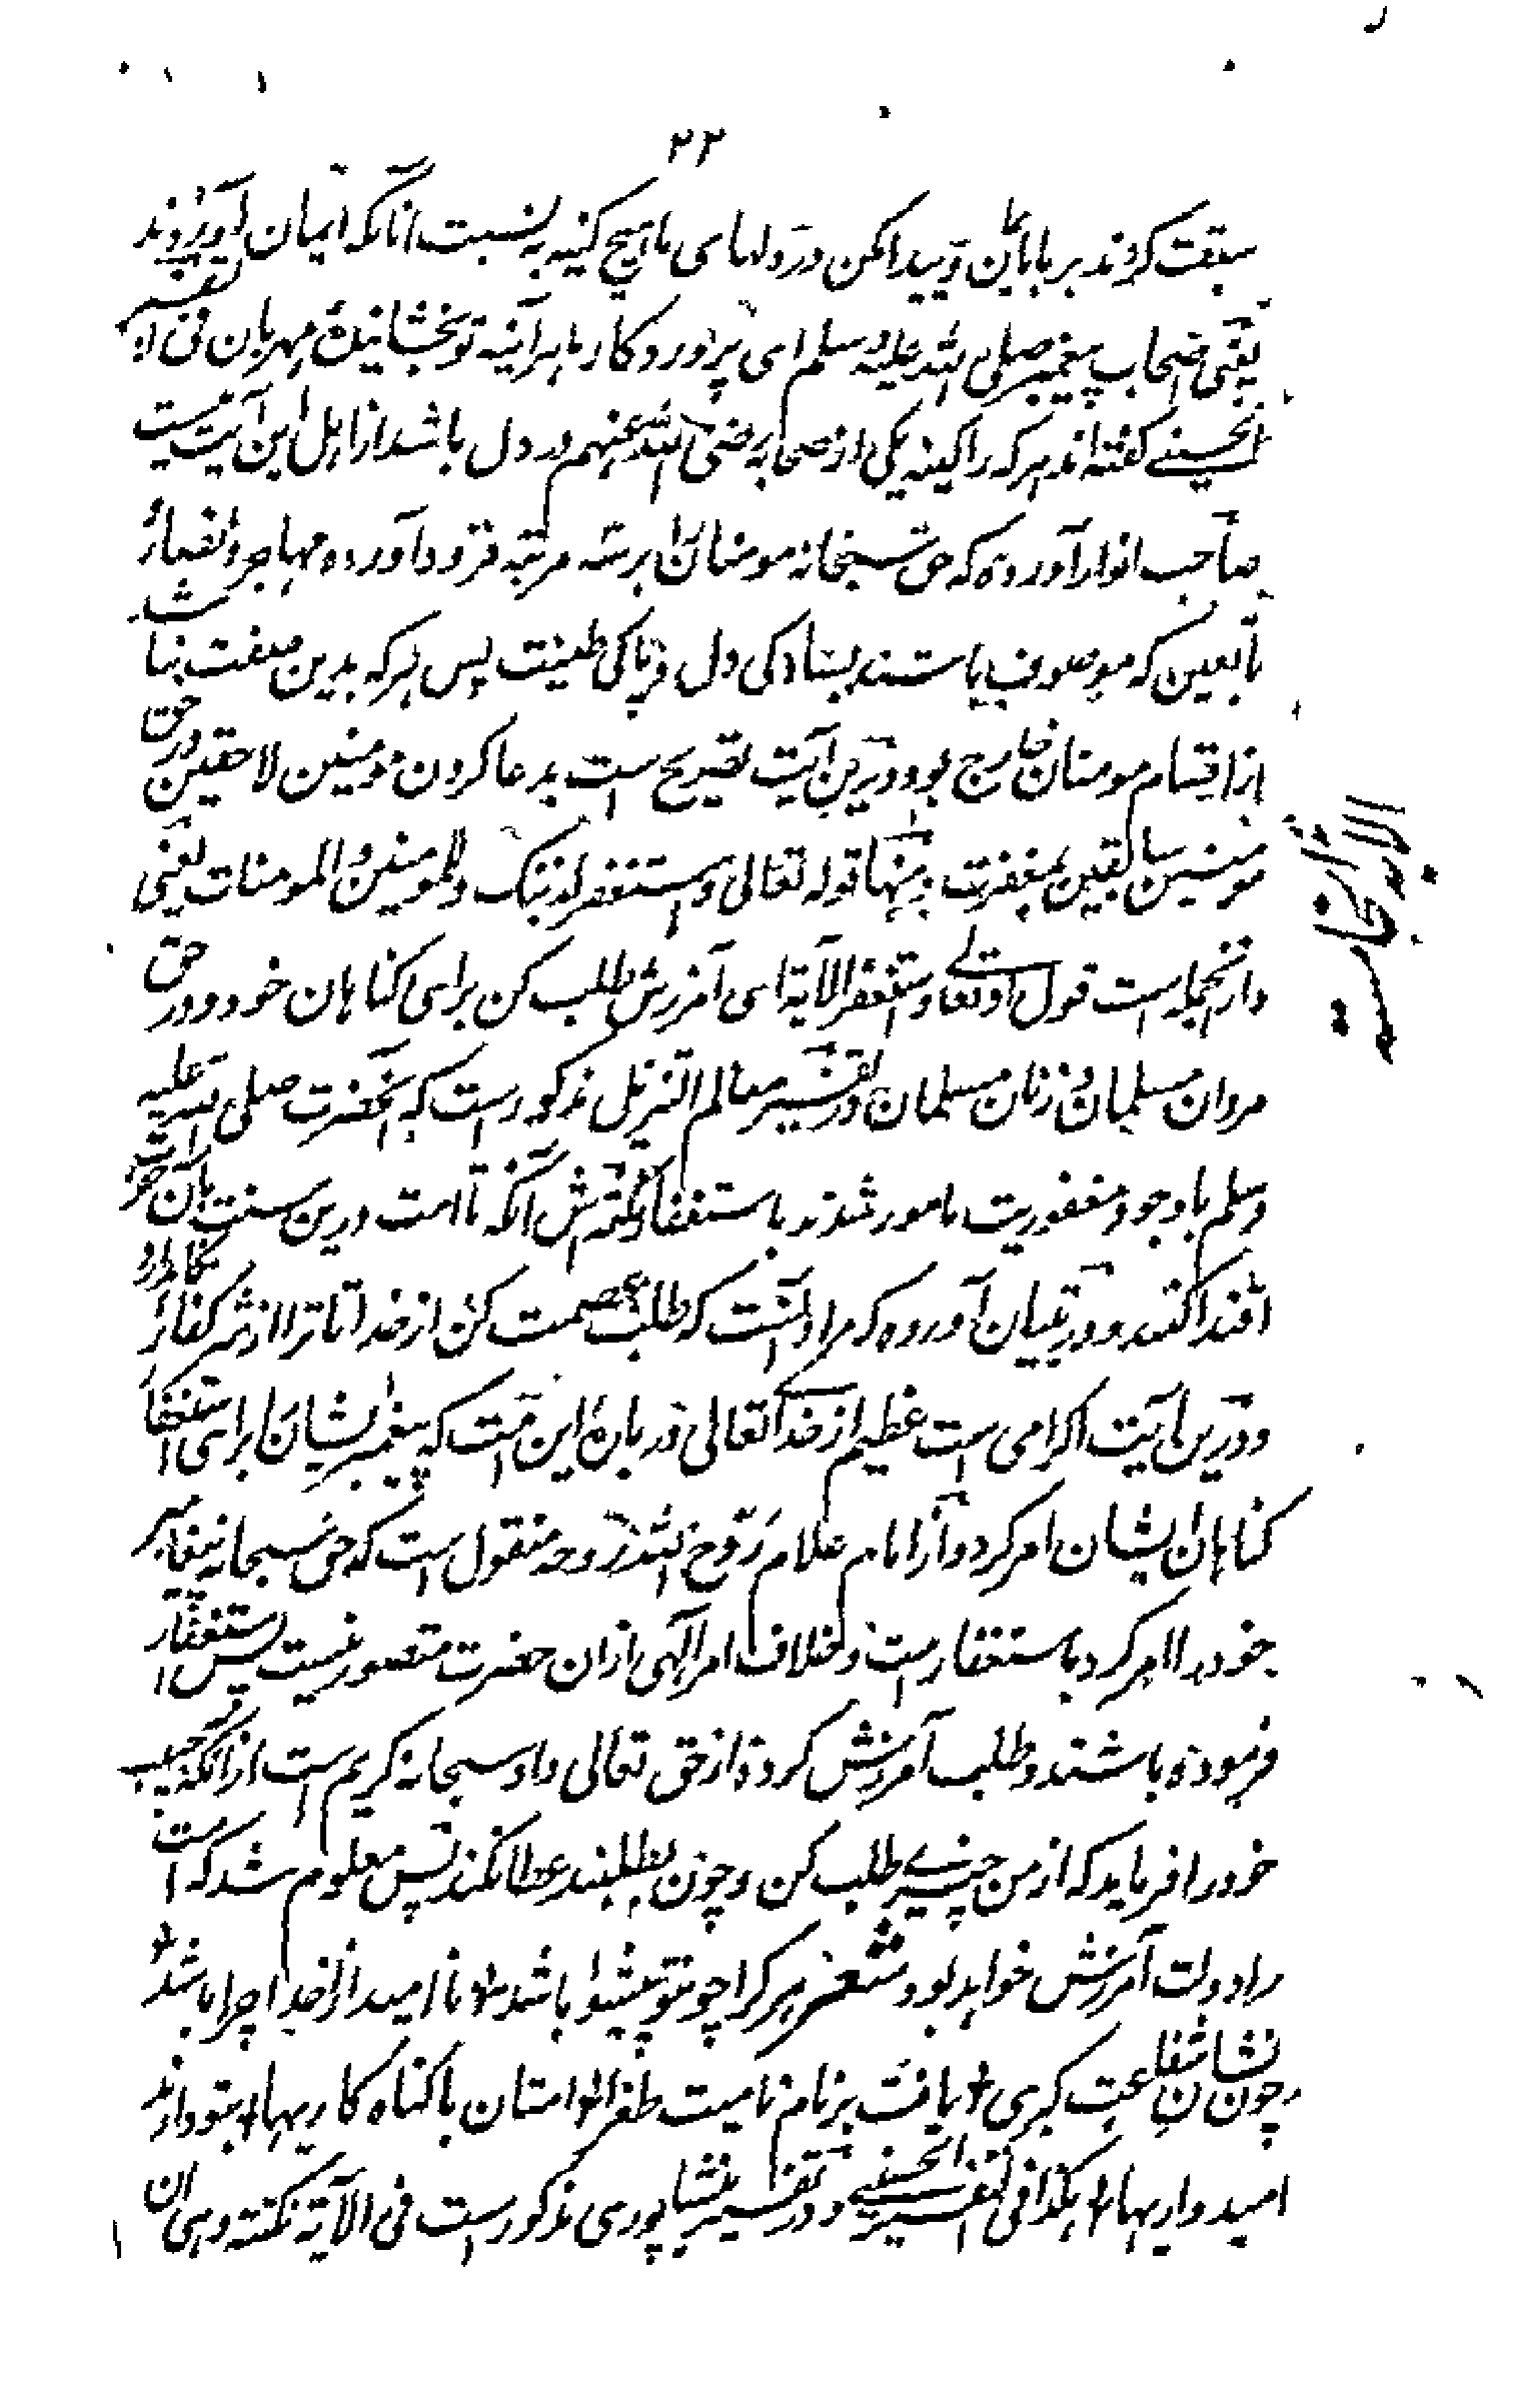 ۲۲
سبقت کردند بر ما بایمان و پیدا مکن در دلهای ما هیچ کینه به نسبت آنانکه ایمان آوردند
یعنی اصحاب پیغمبر صلی الله علیه وسلم ای پروردگار ما هر آئینه تو بخشاینده مهربان فی تفسیر
الحسینی گفته اند هر که را کینه یکی از صحابه رضی الله عنهم در دل باشد از اهل این آیت نیست
صاحب انوار آورده که حق سبحانه مومنان را بر سه مرتبه فرود آورده مهاجر و انصار و
تابعین که موصوف باشند بسادگی دل و پاکی طینت پس هر که بدین صفت نباشد
از اقسام مومنان خارج بود و درین آیت تصریح است بدعا کردن مومنین لاحقین در حق
مومنین سابقین بمغفرت و منها قوله تعالی واستغفر لذنبک وللمومنین والمومنات یعنی
و از انجمله است قول او تعالی واستغفر الآیة ای آمرزش طلب کن برای گناهان خود و در حق
مردان مسلمان و زنان مسلمان و در تفسیر معالم التنزیل مذکور است که آنحضرت صلی الله علیه
وسلم با وجود مغفوریت مامور شدند باستغفار و نکته اش آنکه تا امت درین سنت بآن حضرت
اقتدا کنند و در تبیان آورده که مراد آنست که طلب عصمت کن از خدا تا ترا از شر کفار نگاهدارد
و درین آیت اکرامی است عظیم از خدا تعالی در باره این امت که پیغمبر ایشان را برای استغفار
گناهان ایشان امر کرد و از امام علام روح الله روحه منقول است که حق سبحانه پیغامبر
خود را امر کرد باستغفار امت و خلاف امر الهی از ان حضرت متصور نیست پس استغفار
فرموده باشند و طلب آمرزش کرده از حق تعالی و او سبحانه کریم است از انکه حبیب
خود را فرماید که از من چیزی طلب کن و چون بطلبند عطا نکند پس معلوم شد که امت
را دولت آمرزش خواهد بود شعر هر کرا چو تو پیشوا باشد * نا امید از خدا چرا باشد *
چون نشان شفاعت کبری * یافت بر نام نامیت طغرا * امتان با گناه کاریها * بتو دارند
امیدواریها * هکذا فی تفسیر الحسینی و در تفسیر نیشاپوری مذکور است فی الآیة نکتة وهی ان